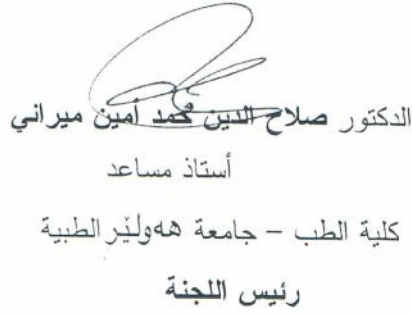 الدكتور صلاح الدين محمد أمين ميراني
أستاذ مساعد
كلية الطب – جامعة هەولێر الطبية
رئيس اللجنة